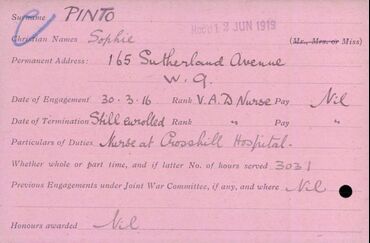 Surname PINTO
Recd 12 JUN 1919
Christian Names Sophie (Mr., Mrs. or Miss)
Permanent Address: 165 Sutherland Avenue
W. 9.
Date of Engagement 30.3.16 Rank V.A.D Nurse Pay Nil
Date of Termination Still enrolled Rank " Pay "
Particulars of Duties Nurse at Crosshill Hospital.
Whether whole or part time, and if latter No. of hours served 3031
Previous Engagements under Joint War Committee, if any, and where Nil
Honours awarded Nil